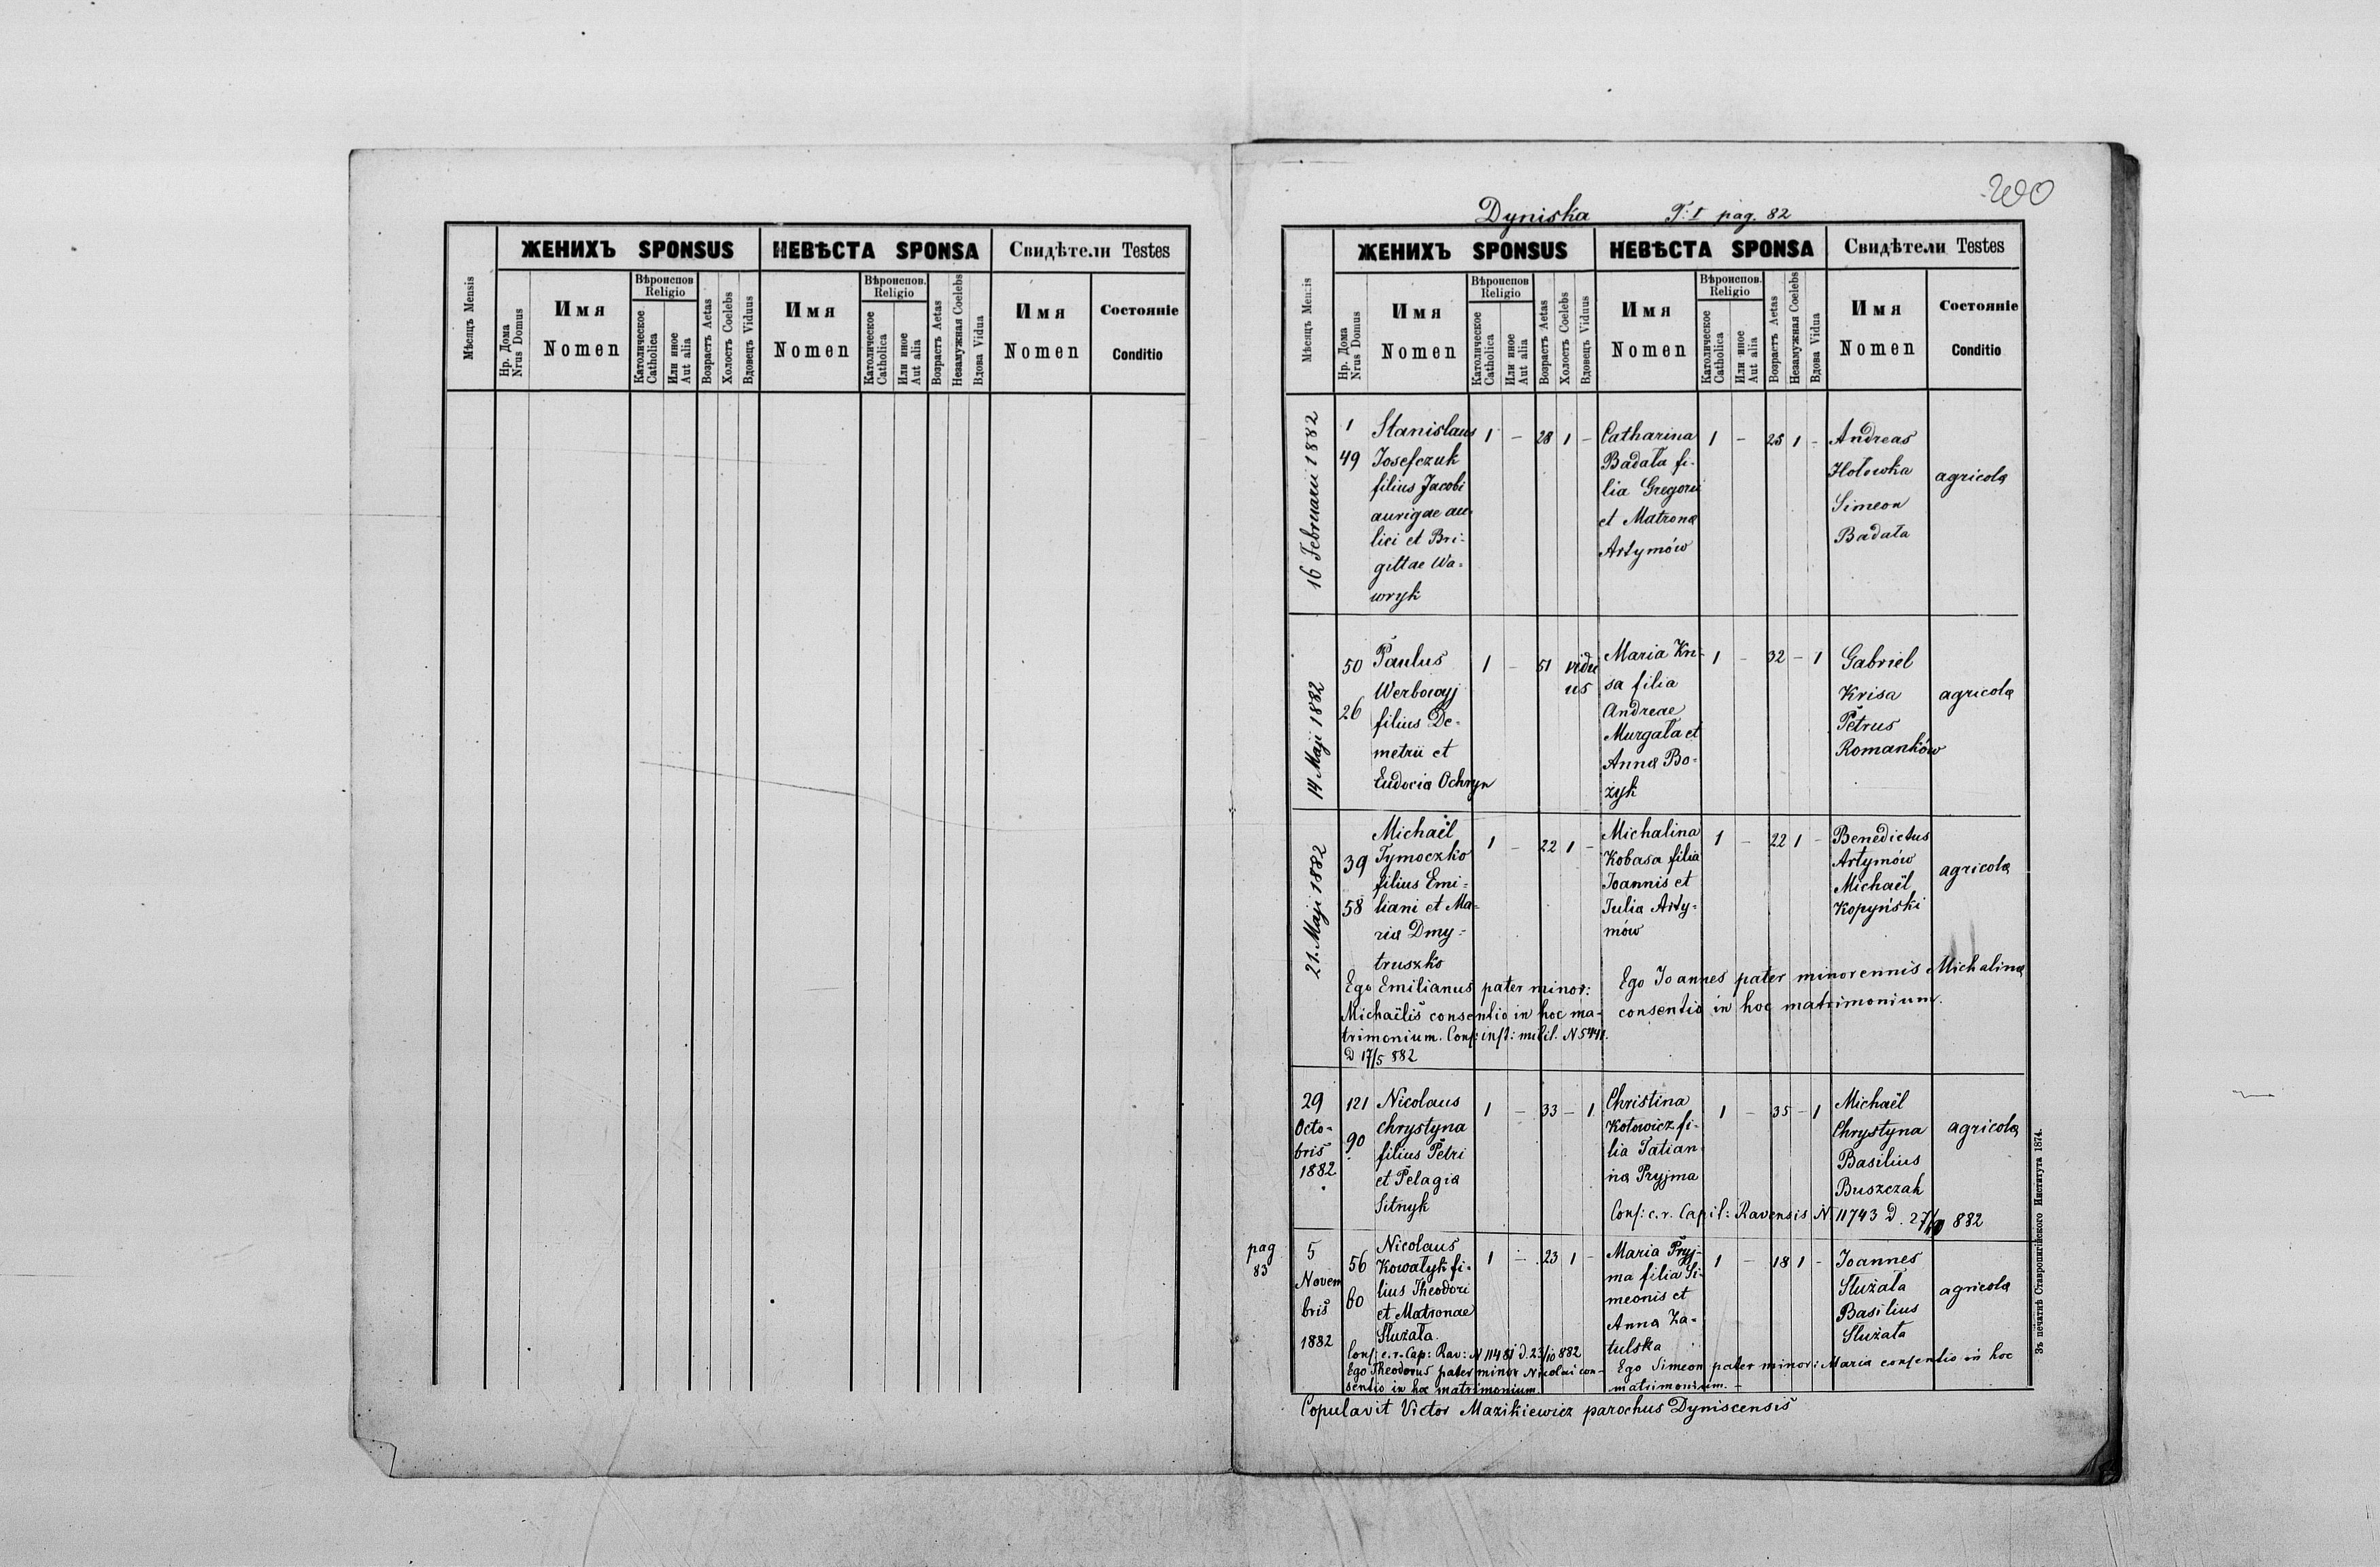 ЖЕНИХЪ SPONSUS
НЕВѢСТА SPONSA
Свидѣтели Testes
Мѣсяцъ Mensis
Нр. Дома
Nrus Domus
Имя
Nomen
Вѣроиспов
Religio
Католическое
Catholica
Или иное
Aut alia
Возрастъ Aetas
Холостъ Coelebs
Вдовецъ Viduus
Имя
Nomen
Вѣроиспов.
Religio
Католическое
Catholica
Или иное
Aut alia
Возрастъ Aetas
Незамужная Coelebs
Вдова Vidua
Имя
Nomen
Состояніе
Conditio
200
Dyniska T: I pag. 82
ЖЕНИХЪ SPONSUS
НЕВѢСТА SPONSA
Свидѣтели Testes
Мѣсяцъ Mensis
Нр. Дома
Nrus Domus
Имя
Nomen
Вѣроиспов
Religio
Католическое
Catholica
Или иное
Aut alia
Возрастъ Aetas
Холостъ Coelebs
Вдовецъ Viduus
Имя
Nomen
Вѣроиспов.
Religio
Католическое
Catholica
Или иное
Aut alia
Возрастъ Aetas
Незамужная Coelebs
Вдова Vidua
Имя
Nomen
Состояніе
Conditio
16 Februarii 1882
1
49
Stanislaus
Josefczuk
filius Jacobi
aurigae au-
lici et Bri-
gittae Wa-
wryk
1 – 28 1 –
Catharina
Badała fi-
lia Gregorii
et Matrona
Artymów
1 – 25 1 –
Andreas
Hołowka
Simeon
Badała
agricola
14 Maji 1882
50
26
Paulus
Werbowyj
filius De-
metrii et
Eudocia Ochryn
1 – 51 vidu
us
Maria Kri-
sa filia
Andreae
Murgała et
Anna Bo-
zyk
1 – 32 – 1
Gabriel
Krisa
Petrus
Romanków
agricola
21. Maji 1882
39
58
Michaël
Tymoczko
filius Emi-
liani et Ma-
ria Dmy-
truszko
1 – 22 1 –
Michalina
Kobasa filia
Joannis et
Julia Arty-
mów
1 – 22 1 –
Benedictus
Artymów
Michaël
Kopyński
agricola
Ego Emilianus pater minor:
Michaëlis consentio in hoc ma-
trimonium. Conf: inst: milit. N 5441.
D 17/5 882
Ego Joannes pater minorennis Michalina
consentio in hoc matrimonium.
29
Octo-
bris
1882
121
90
Nicolaus
Chrystyna
filius Petri
et Pelagia
Sitnyk
1 – 33 – 1
Christina
Kotowicz fi-
lia Tatian-
na Pryjma
1 – 35 – 1
Michaël
Chrystyna
Basilius
Buszczak
agricola
Conf: c. r. Capit: Ravensis N 11743 D. 27/10 882
pag
83
5
Novem
bris
1882
56
60
Nicolaus
Kowalyk fi-
lius Theodori
et Matronae
Służała
1 – 23 1 –
Maria Pryj-
ma filia Si-
meonis et
Anna Za-
tulska
1 – 18 1 –
Joannes
Służała
Basilius
Służała
agricola
Conf: c. r. Cap: Rav: N 11481 d. 23/10 882
Ego Theodorus pater minor Nicolai con-
sentio in hoc matrimonium.
Ego Simeon pater minor: Maria consentio in hoc
matrimonium. –
Copulavit Victor Mazikiewicz parochus Dyniscensis
Зъ печатнѣ Ставропигійского Института 1874.